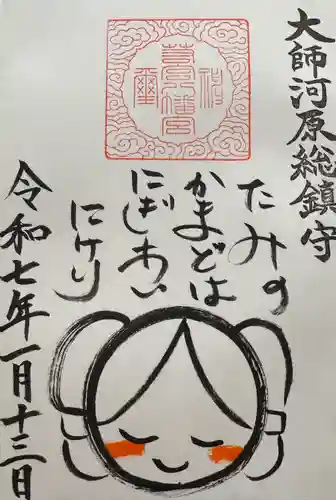 大師河原総鎮守
たみの
かまどは
にぎわい
にけり
令和七年一月十三日